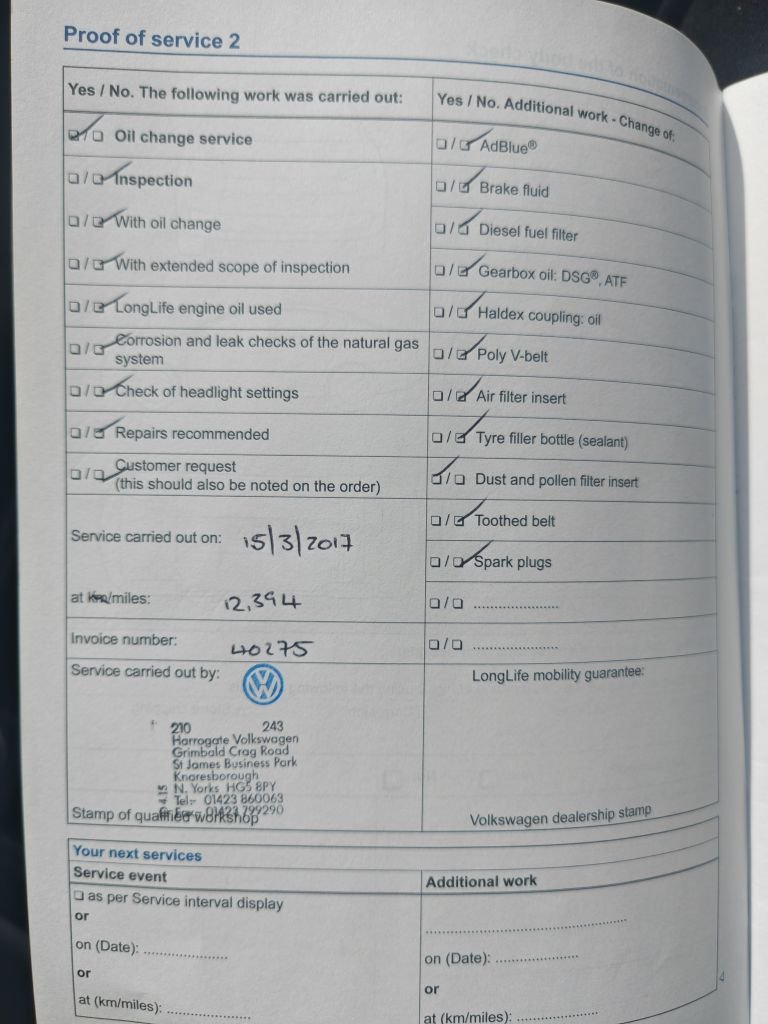 Proof of service 2
Yes / No. The following work was carried out:
☑/☐ Oil change service
☐/☑ Inspection
☐/☑ With oil change
☐/☑ With extended scope of inspection
☐/☑ LongLife engine oil used
☐/☑ Corrosion and leak checks of the natural gas
system
☐/☑ Check of headlight settings
☐/☑ Repairs recommended
☐/☑ Customer request
(this should also be noted on the order)
Service carried out on: 15/3/2017
at km/miles: 12,394
Invoice number: 40275
Service carried out by:
210 243
Harrogate Volkswagen
Grimbald Crag Road
St James Business Park
Knaresborough
N. Yorks HG5 8PY
Tel:- 01423 860063
01423 799290
4.15
Stamp of qualified workshop
Yes / No. Additional work - Change of:
☐/☑ AdBlue®
☐/☑ Brake fluid
☐/☑ Diesel fuel filter
☐/☑ Gearbox oil: DSG®, ATF
☐/☑ Haldex coupling: oil
☐/☑ Poly V-belt
☐/☑ Air filter insert
☐/☑ Tyre filler bottle (sealant)
☑/☐ Dust and pollen filter insert
☐/☑ Toothed belt
☐/☑ Spark plugs
☐/☐ .....................
☐/☐ .....................
LongLife mobility guarantee:
Volkswagen dealership stamp
Your next services
Service event
☐ as per Service interval display
or
on (Date): .....................
or
at (km/miles): .....................
Additional work
..................................................
on (Date): .....................
or
at (km/miles): .....................
4